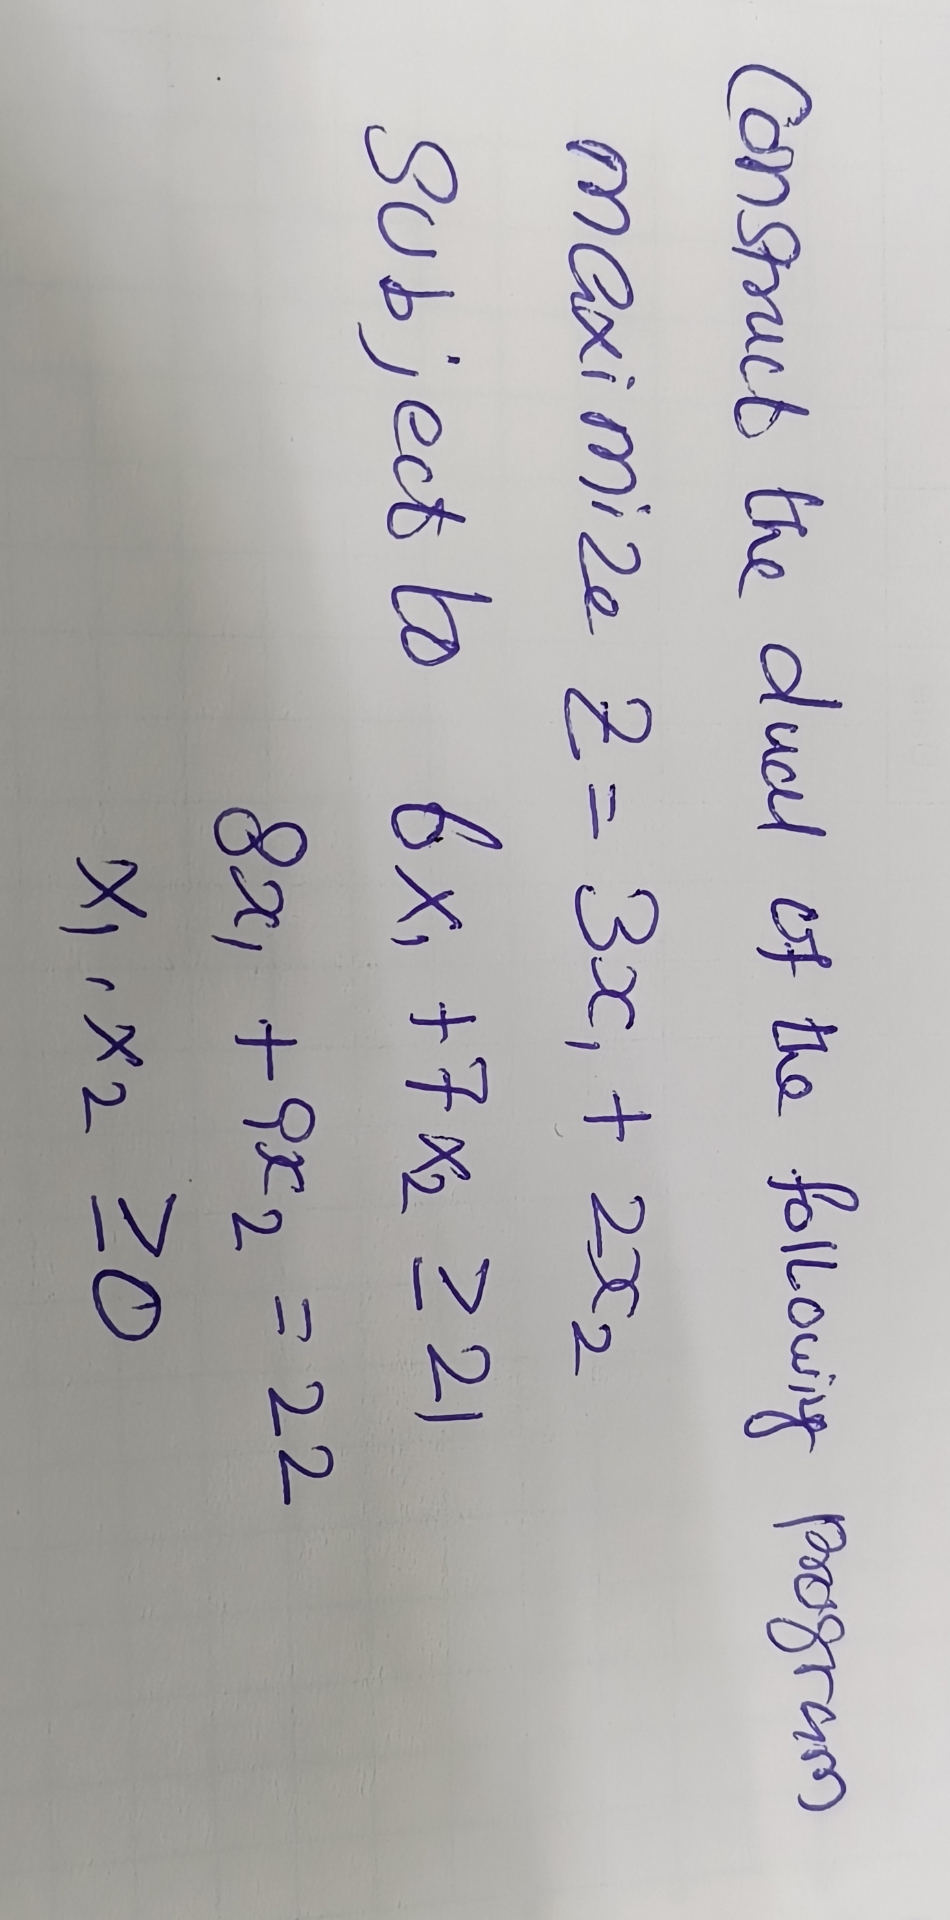 Construct the dual of the following program
maximize Z = 3x₁ + 2x₂
Subject to 6x₁ + 7x₂ ≥ 21
8x₁ + 9x₂ = 22
x₁, x₂ ≥ 0